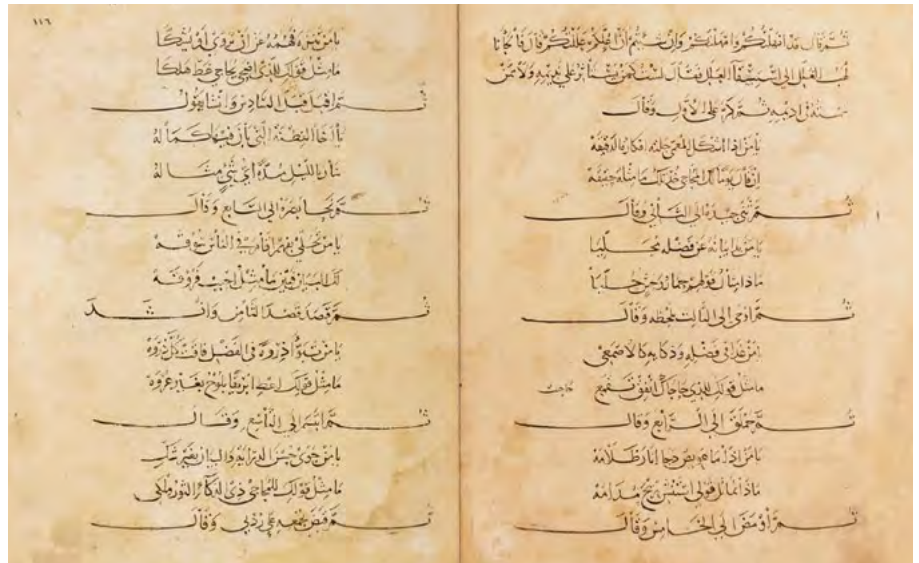 ثم قال قد انهلتكم وامهلتكم وان شئتم ان اعلكم عللتكم قال فالجانا
لهب الغلل الى استسقاء العلل فقال لست كمن يستأثر على نديمه ولا ممن
سمنه في اديمه ثم كر على الاول وقال
يا من اذا اشكل المعمى جلته افكاره الدقيقة
ان قال يوما لك المحاجي خذ تلك ما مثله حقيقة
ثم ثنى جيده الى الثاني وقال
يا من بدا بيانه عن فضله
ماذا مثال قولهم حمار وحش
ثم اوحى الى الثالث بلحظه وقال
يا من غدا في فضله وذكايه كالاصمعي
ما مثل قولك للذي حاجاك انفق تقمع
ثم حملق الى الرابع وقال
يا من اذا ما عويص دجا انار ظلامه
ماذا يماثل قولي استنش ريح مدامه
ثم اومض الى الخامس وقال
١١٦
يا من تنزه فهمه عن ان يروي او يشكا
ما مثل قولك للذي اضحى يحاجي غط هلكا
ثم اقبل قبل السادس وانشا يقول
يا اخا الفطنة التي بان فيها كماله
سار بالليل مدة اي شيء مثاله
ثم نحا بصره الى السابع وقال
يا من تحلى بفهم اقام في الناس سوقه
لك البيان فبين ما مثل احبب فروقه
ثم قصد قصد الثامن وانشد
يا من تبوأ ذروة في الفضل فاقت كل ذروه
ما مثل قولك اعط ابريقا يلوح بغير عروة
ثم ابتسم الى التاسع وقال
يا من حوى حسن الدراية والبيان بغير شك
ما مثل قولك للمحاجي ذي الذكاء الثور ملكي
ثم قبض بجمعه على ردني وقال